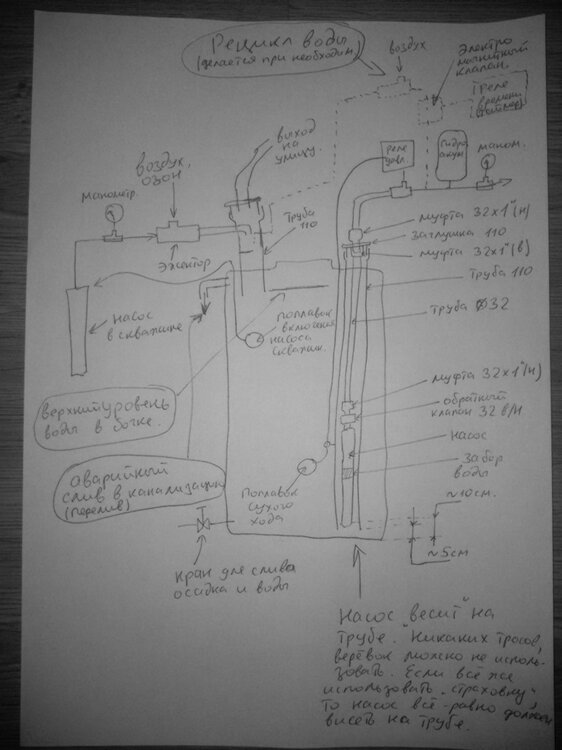 Рецикл воды
(делается при необходим)
воздух
Электро
магнитный
клапан.
реле
времени
(таймер)
выход
на
улицу.
воздух,
озон
манометр.
реле
давл
гидро
аккум
маном.
Эжектор
Труба
110
муфта 32х1"(н)
Заглушка 110
муфта 32х1"(в)
Труба 110
Труба ф32
насос
в скважине
поплавок
включения
насоса
скважин.
верхний уровень
воды в бочке.
муфта 32х1"(н)
обратный
клапан 32 в/н
насос
Забор
воды
аварийный
слив в канализацию
(перелив)
Поплавок
сухого
хода
~10см.
~5см
кран для слива
осадка и воды
Насос "весит" на
трубе. Никаких тросов,
верёвок можно не исполь-
зовать. Если всё же
использовать "страховку"
то насос всё-равно должен
висеть на трубе.